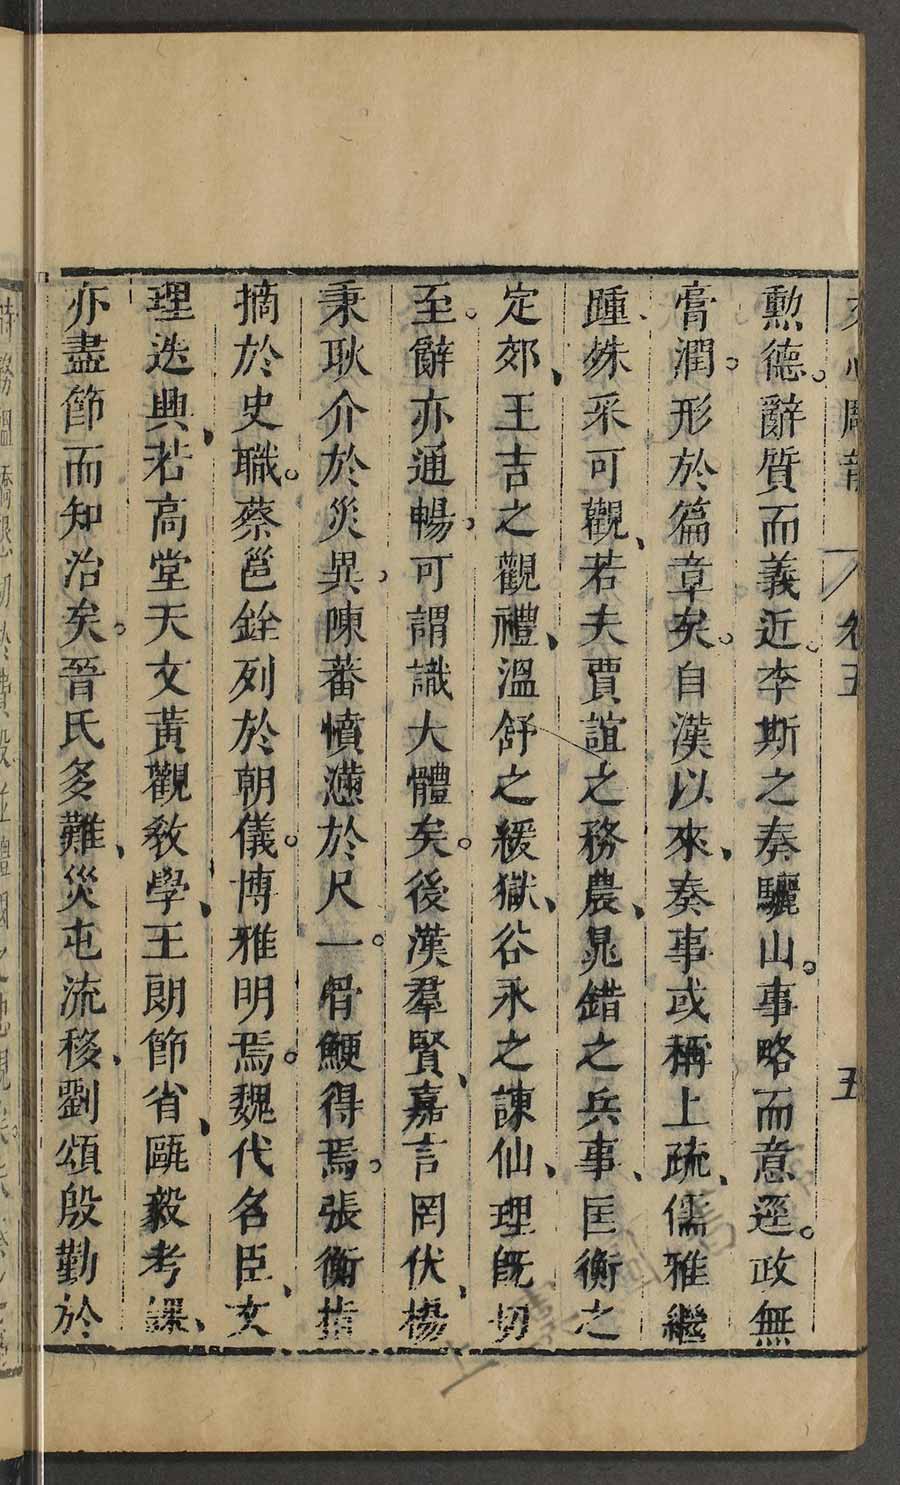 文心雕龍 卷五 五
勲德。辭質而義近。李斯之奏驪山。事略而意逕。政無
膏潤。形於篇章矣。自漢以來、奏事或稱上疏、儒雅繼
踵、殊采可觀、若夫賈誼之務農、晁錯之兵事、匡衡之
定郊、王吉之觀禮、溫舒之緩獄、谷永之諫仙、理既切
至。辭亦通暢、可謂識大體矣。後漢羣賢、嘉言罔伏、楊
秉耿介於災異、陳蕃憤懣於尺一。骨鯁得焉。張衡指
摘於史職。蔡邕銓列於朝儀。博雅明焉。魏代名臣、文
理迭興、若高堂天文黃觀教學、王朗節省、甌毅考課、
亦盡節而知治矣。晉氏多難、災屯流移、劉頌殷勤於